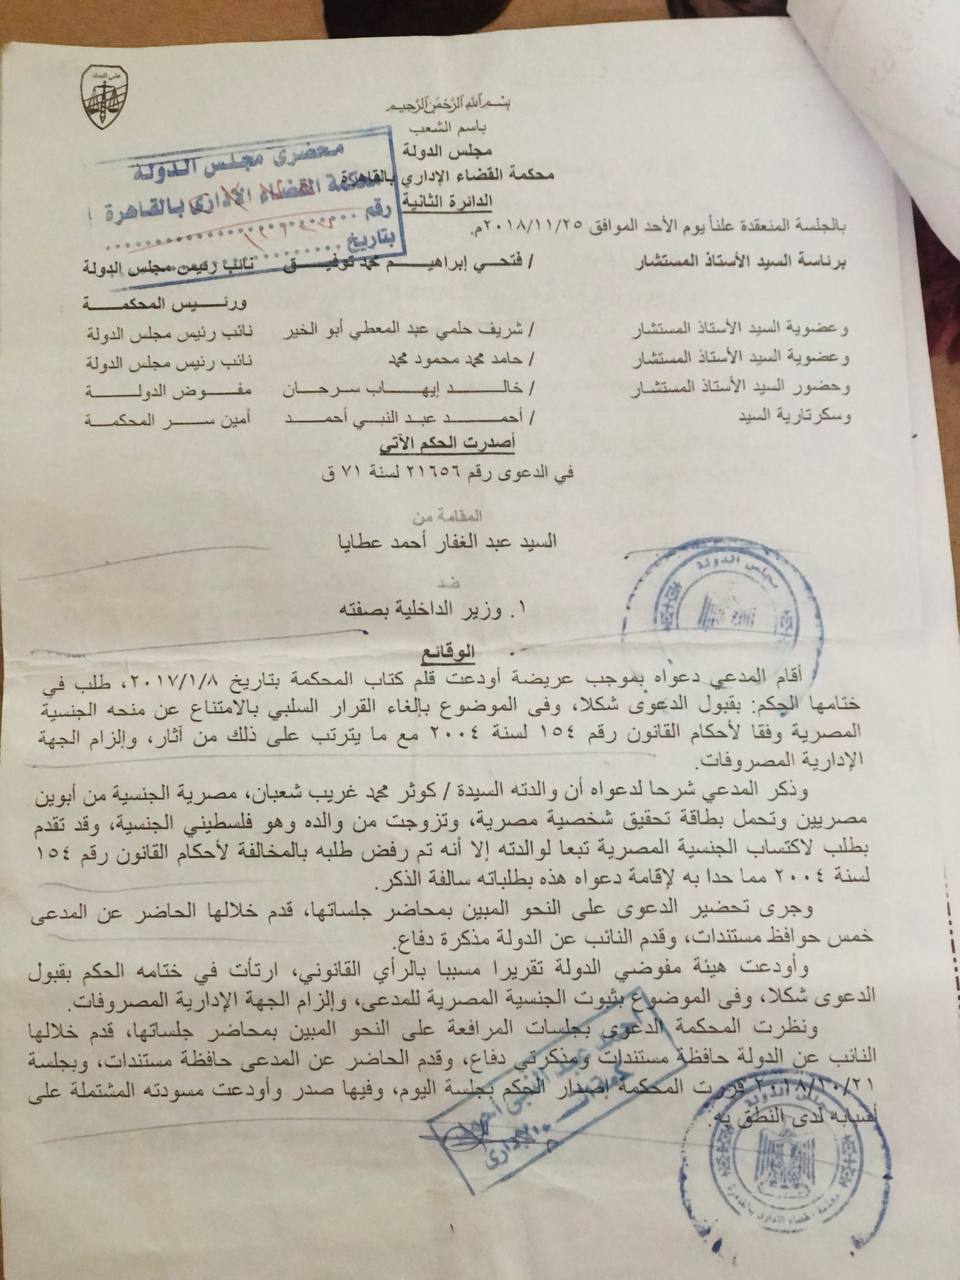 مجلس الدولة
بسم الله الرحمن الرحيم
باسم الشعب
مجلس الدولة
محكمة القضاء الإداري بالقاهرة
الدائرة الثانية
محضرى مجلس الدولة
محكمة القضاء الإدارى بالقاهرة
رقم
بتاريخ
بالجلسة المنعقدة علنأ يوم الأحد الموافق ٢٠١٨/١١/٢٥م.
برئاسة السيد الأستاذ المستشار / فتحي إبراهيم محمد توفيق نائب رئيس مجلس الدولة
ورئيس المحكمة
وعضوية السيد الأستاذ المستشار / شريف حلمي عبد المعطي أبو الخير نائب رئيس مجلس الدولة
وعضوية السيد الأستاذ المستشار / حامد محمد محمود محمد نائب رئيس مجلس الدولة
وحضور السيد الأستاذ المستشار / خالد إيهاب سرحان مفوض الدولة
وسكرتارية السيد / أحمد عبد النبي أحمد أمين سر المحكمة
أصدرت الحكم الآتي
في الدعوى رقم ٢١٦٥٦ لسنة ٧١ ق
المقامة من
السيد عبد الغفار أحمد عطايا
ضد
١. وزير الداخلية بصفته
مجلس الدولة
الوقائع
أقام المدعي دعواه بموجب عريضة أودعت قلم كتاب المحكمة بتاريخ ٢٠١٧/١/٨، طلب في
ختامها الحكم: بقبول الدعوى شكلا، وفى الموضوع بإلغاء القرار السلبي بالامتناع عن منحه الجنسية
المصرية وفقا لأحكام القانون رقم ١٥٤ لسنة ٢٠٠٤ مع ما يترتب على ذلك من آثار، وإلزام الجهة
الإدارية المصروفات.
وذكر المدعي شرحا لدعواه أن والدته السيدة / كوثر محمد غريب شعبان، مصرية الجنسية من أبوين
مصريين وتحمل بطاقة تحقيق شخصية مصرية، وتزوجت من والده وهو فلسطيني الجنسية، وقد تقدم
بطلب لاكتساب الجنسية المصرية تبعا لوالدته إلا أنه تم رفض طلبه بالمخالفة لأحكام القانون رقم ١٥٤
لسنة ٢٠٠٤ مما حدا به لإقامة دعواه هذه بطلباته سالفة الذكر.
وجرى تحضير الدعوى على النحو المبين بمحاضر جلساتها، قدم خلالها الحاضر عن المدعى
خمس حوافظ مستندات، وقدم النائب عن الدولة مذكرة دفاع.
وأودعت هيئة مفوضي الدولة تقريرا مسببا بالرأي القانوني، ارتأت في ختامه الحكم بقبول
الدعوى شكلا، وفى الموضوع بثبوت الجنسية المصرية للمدعى، وإلزام الجهة الإدارية المصروفات.
ونظرت المحكمة الدعوى بجلسات المرافعة على النحو المبين بمحاضر جلساتها، قدم خلالها
النائب عن الدولة حافظة مستندات ومذكرتي دفاع، وقدم الحاضر عن المدعى حافظة مستندات، وبجلسة
٢٠١٨/١٠/٢١ قررت المحكمة إصدار الحكم بجلسة اليوم، وفيها صدر وأودعت مسودته المشتملة على
أسبابه لدى النطق به.
مجلس الدولة
محكمة القضاء الإدارى بالقاهرة
١